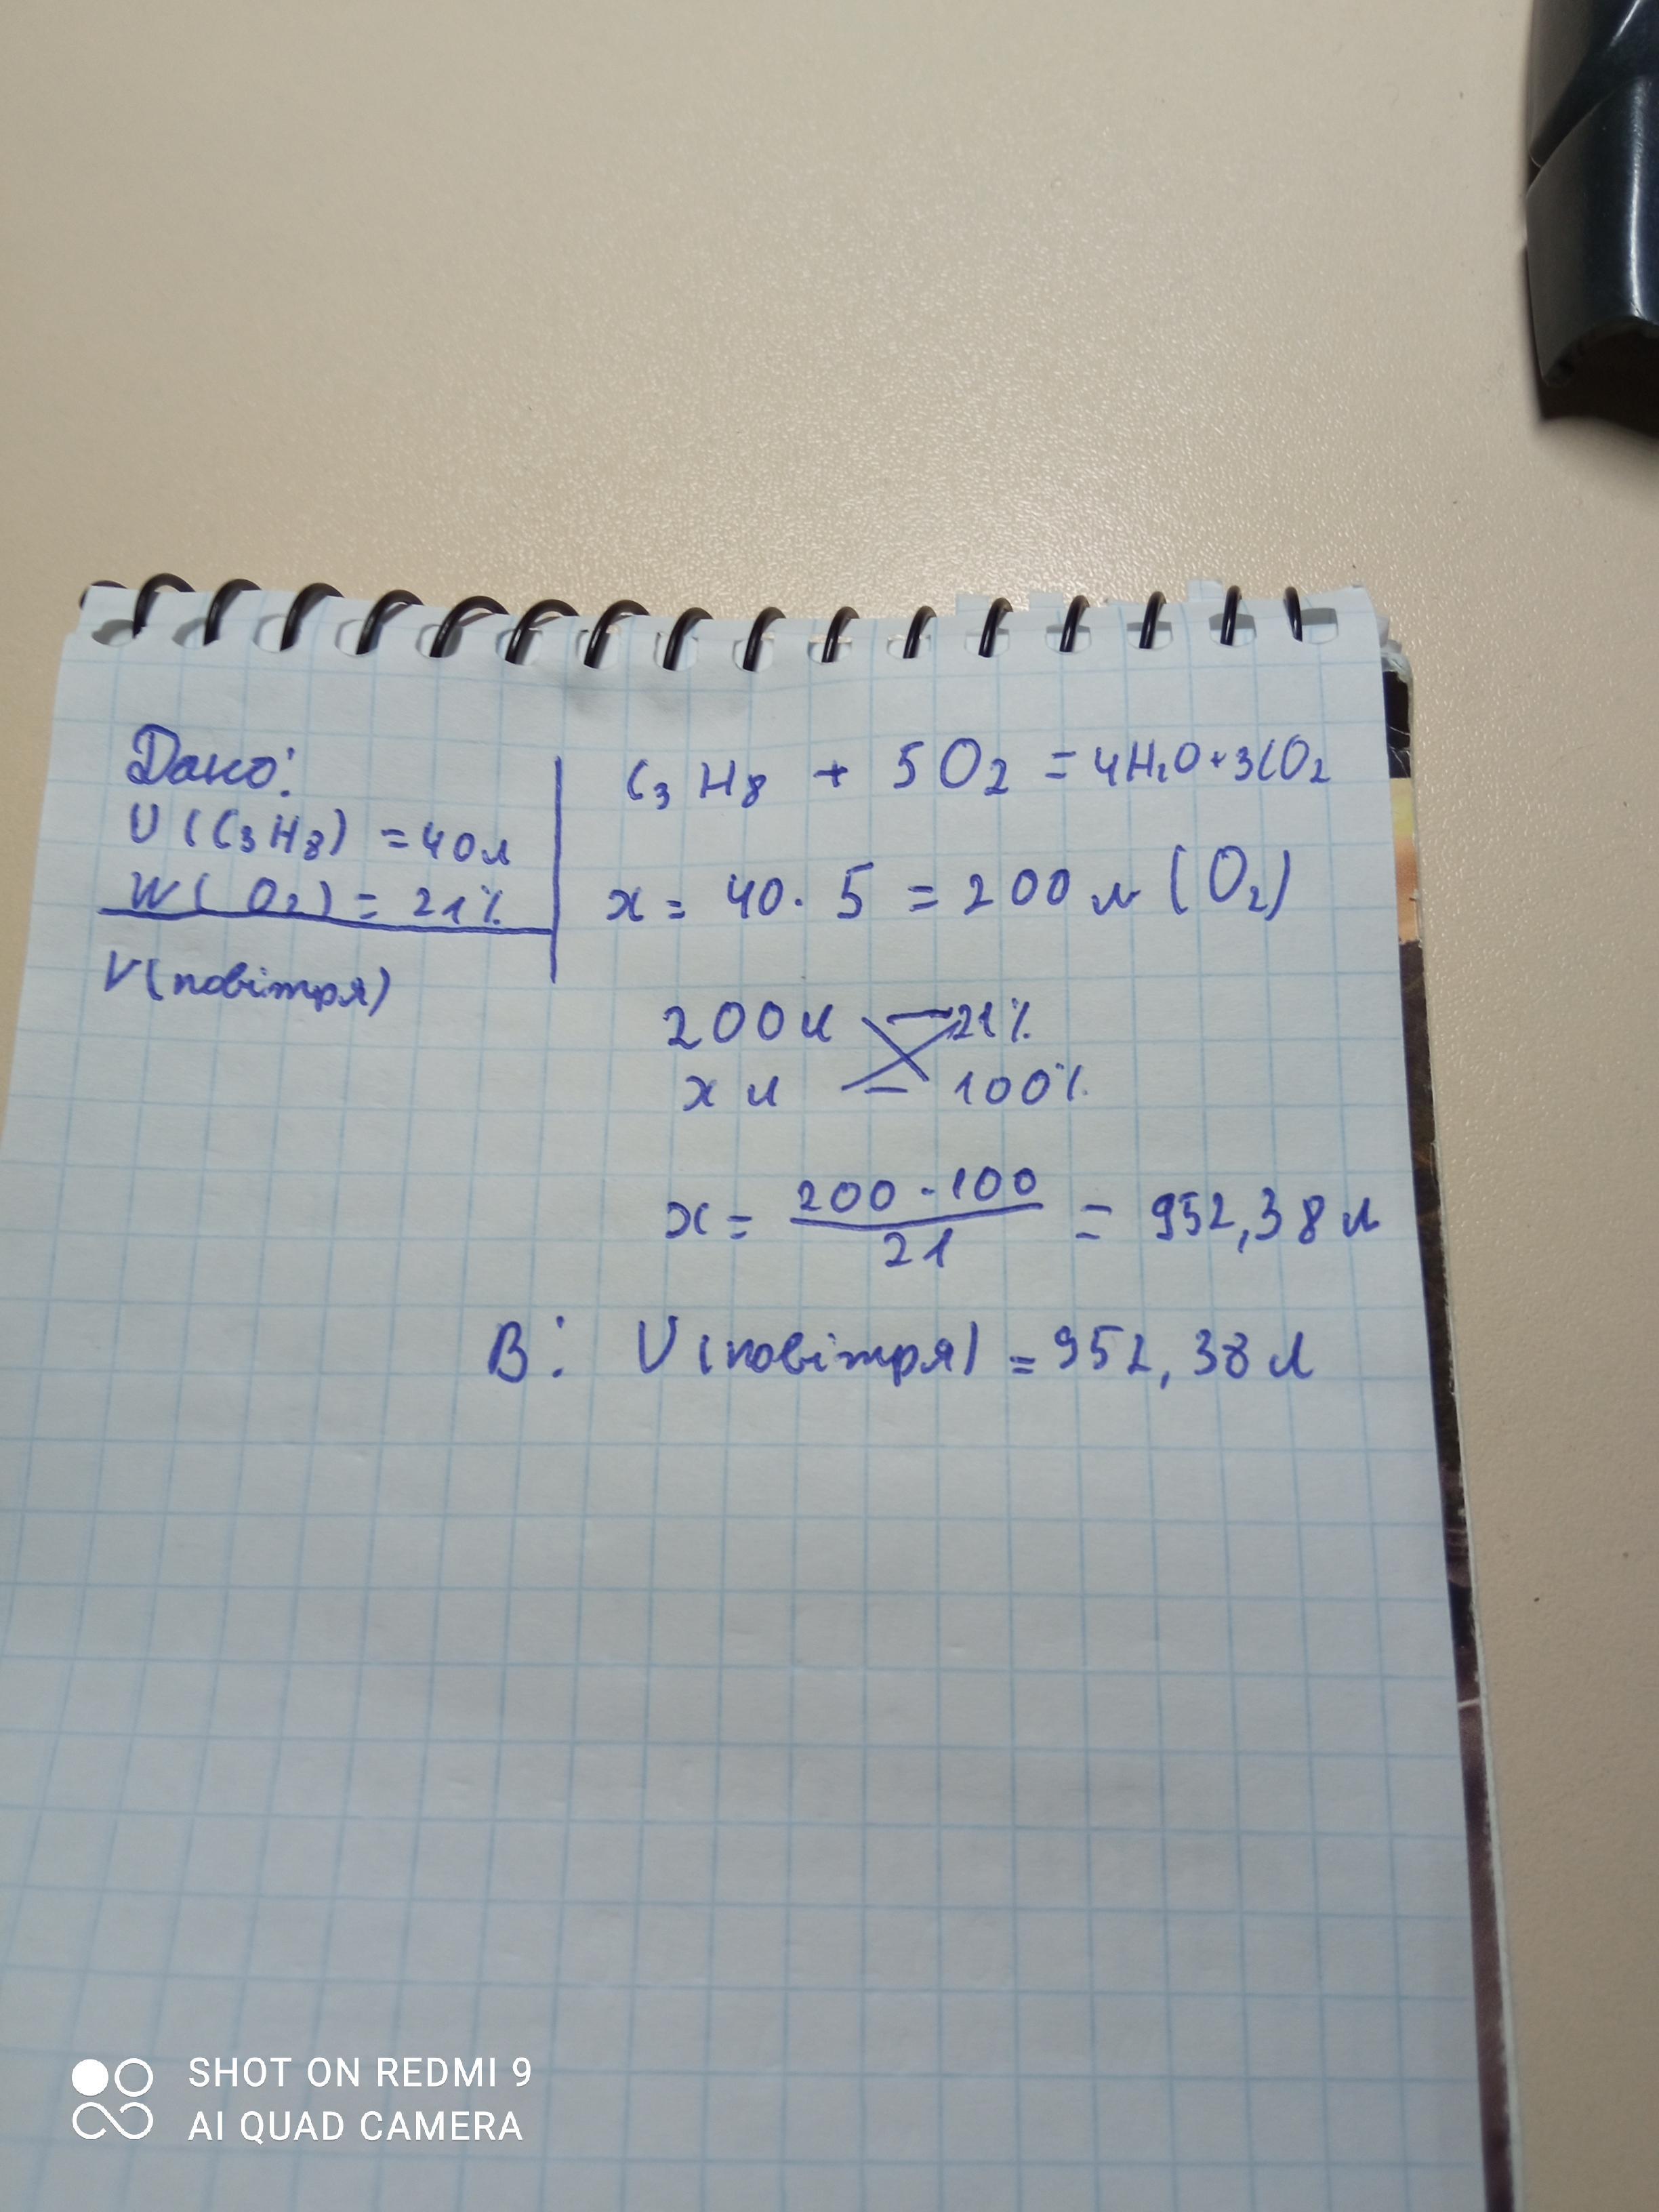 Дано:
V(C3H8) = 40л
W(O2) = 21%
V(повітря)
C3H8 + 5O2 = 4H2O+3CO2
x = 40 · 5 = 200 л (O2)
200л — 21%
x л — 100%
x = 200 · 100 / 21 = 952,38 л
В: V(повітря) = 952,38 л
SHOT ON REDMI 9
AI QUAD CAMERA